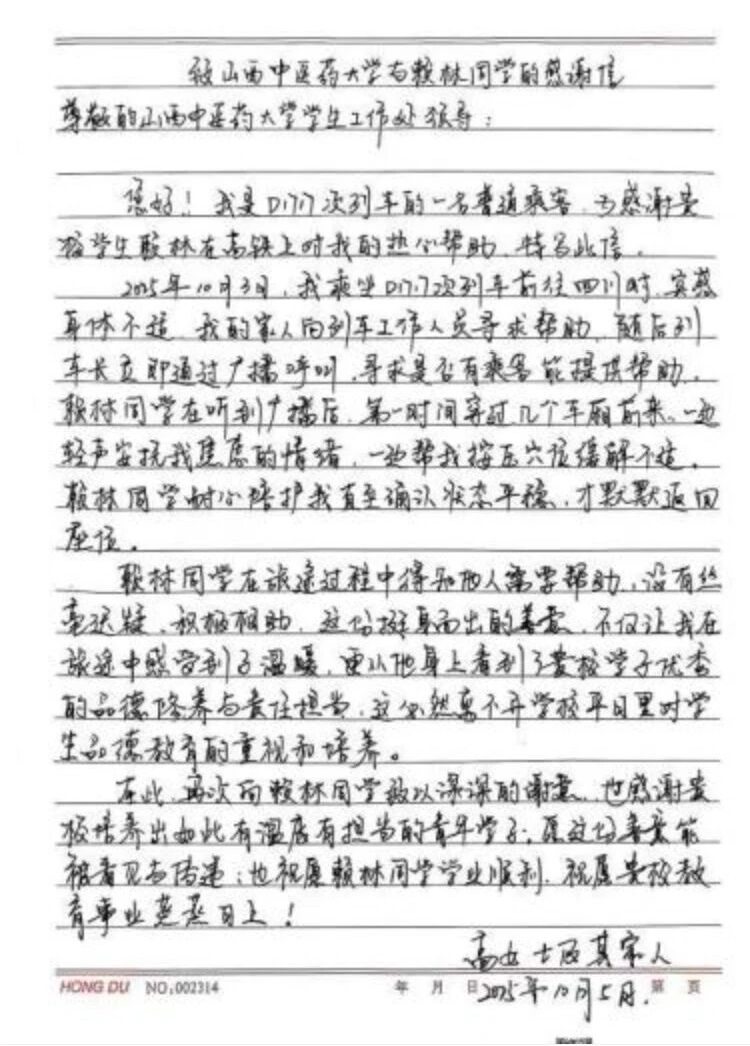 致山西中医药大学与赖林同学的感谢信
尊敬的山西中医药大学学生工作处领导:
您好!我是D1717次列车的一名普通乘客,为感谢贵
校学生赖林在高铁上对我的热心帮助,特写此信。
2025年10月3日,我乘坐D1717次列车前往四川时,突感
身体不适,我的家人向列车工作人员寻求帮助,随后列
车长立即通过广播呼叫,寻求是否有乘客能提供帮助,
赖林同学在听到广播后,第一时间穿过几个车厢前来,一边
轻声安抚我焦虑的情绪,一边帮我按压穴位缓解不适,
赖林同学耐心陪护我直至确认状态平稳,才默默返回
座位。
赖林同学在旅途过程中得知他人需要帮助,没有丝
毫迟疑,积极相助,这份挺身而出的善意,不仅让我在
旅途中感受到了温暖,更从他身上看到了贵校学子优秀
的品德修养与责任担当,这必然离不开学校平日里对学
生品德教育的重视和培养。
在此,再次向赖林同学致以深深的谢意,也感谢贵
校培养出如此有温度有担当的青年学子;愿这份善意能
被看见与传递;也祝愿赖林同学学业顺利,祝愿贵校教
育事业蒸蒸日上!
高女士及其家人
HONG DU NO:002314 年 月 日 第 页
2025年10月5日.